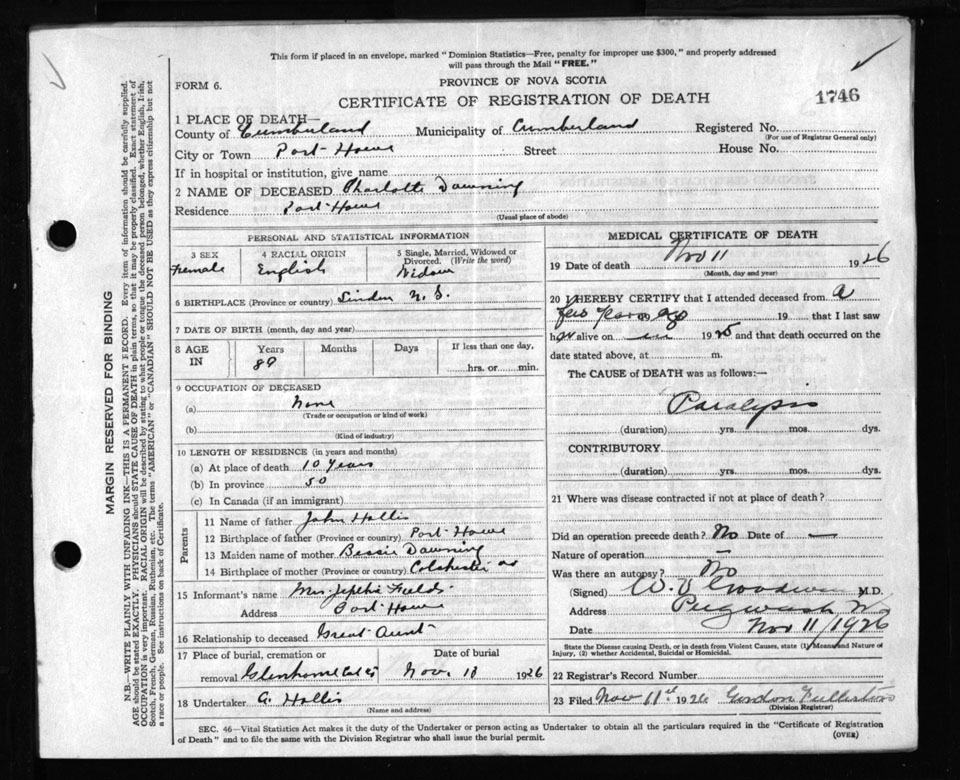 This form if placed in an envelope, marked "Dominion Statistics—Free, penalty for improper use $300," and properly addressed
will pass through the Mail "FREE."
FORM 6.
PROVINCE OF NOVA SCOTIA
CERTIFICATE OF REGISTRATION OF DEATH
1746
1 PLACE OF DEATH—
County of Cumberland Municipality of Cumberland Registered No.
(For use of Registrar General only)
City or Town Port Howe Street House No.
If in hospital or institution, give name
2 NAME OF DECEASED Charlotte Downing
Residence Port Howe
(Usual place of abode)
PERSONAL AND STATISTICAL INFORMATION
3 SEX Female
4 RACIAL ORIGIN English
5 Single, Married, Widowed or Divorced. (Write the word) Widow
6 BIRTHPLACE (Province or country) Linden N.S.
7 DATE OF BIRTH (month, day and year)
8 AGE IN Years Months Days If less than one day,
hrs. or min.
9 OCCUPATION OF DECEASED
(a) None
(Trade or occupation or kind of work)
(b)
(Kind of industry)
10 LENGTH OF RESIDENCE (in years and months)
(a) At place of death 10 Years
(b) In province 50
(c) In Canada (if an immigrant)
Parents
11 Name of father John Hollis
12 Birthplace of father (Province or country) Port Howe
13 Maiden name of mother Bessie Downing
14 Birthplace of mother (Province or country) Colchester
15 Informant's name Mrs Jepthe Fields
Address Port Howe
16 Relationship to deceased Great Aunt
17 Place of burial, cremation or removal Date of burial
Nov. 13 1926
18 Undertaker A. Hollis
(Name and address)
MEDICAL CERTIFICATE OF DEATH
19 Date of death Nov 11 1926
(Month, day and year)
20 I HEREBY CERTIFY that I attended deceased from a
few years ago 19 that I last saw
her alive on 1925 and that death occurred on the
date stated above, at m.
The CAUSE of DEATH was as follows:—
Paralysis
(duration) yrs. mos. dys.
CONTRIBUTORY
(duration) yrs. mos. dys.
21 Where was disease contracted if not at place of death?
Did an operation precede death? No Date of —
Nature of operation —
Was there an autopsy? No
(Signed) W. V. Goodwin M.D.
Address Pugwash NS
Date Nov 11/1926
State the Disease causing Death, or in death from Violent Causes, state (1) Means and Nature of
Injury, (2) whether Accidental, Suicidal or Homicidal.
22 Registrar's Record Number
23 Filed Nov 11st 1926 Gordon Fullerton
(Division Registrar)
SEC. 46—Vital Statistics Act makes it the duty of the Undertaker or person acting as Undertaker to obtain all the particulars required in the "Certificate of Registration
of Death" and to file the same with the Division Registrar who shall issue the burial permit.
(OVER)
MARGIN RESERVED FOR BINDING
N.B.—WRITE PLAINLY WITH UNFADING INK—THIS IS A PERMANENT RECORD. Every item of information should be carefully supplied.
AGE should be stated EXACTLY. PHYSICIANS should STATE CAUSE OF DEATH in plain terms, so that it may be properly classified. Exact statement of
OCCUPATION is very important. RACIAL ORIGIN will be described by stating to what people or tongue the deceased person belonged, whether English, Irish,
Scotch, French, German, Russian, Ruthenian, etc. The terms "AMERICAN" or "CANADIAN" SHOULD NOT BE USED as they express citizenship but not
a race or people. See instructions on back of Certificate.